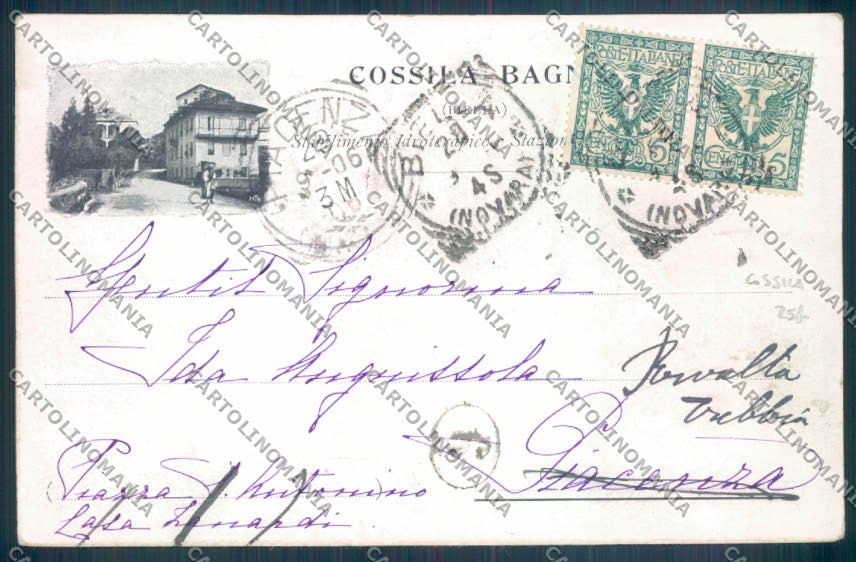 COSSILA - BAGN
(BIELLA)
Stabilimento Idroterapico e Stazion
POSTE ITALIANE
CENT. 5
POSTE ITALIANE
CENT. 5
PIACENZA
06
3 M
4 S
(NOVARA)
(NOVARA)
Gentil Signorina
Ida Anguissola
Rivalta
Trebbia
Piacenza
(Piazza S. Antonino
Casa Zanardi)
COSSILA
CARTOLINOMANIA